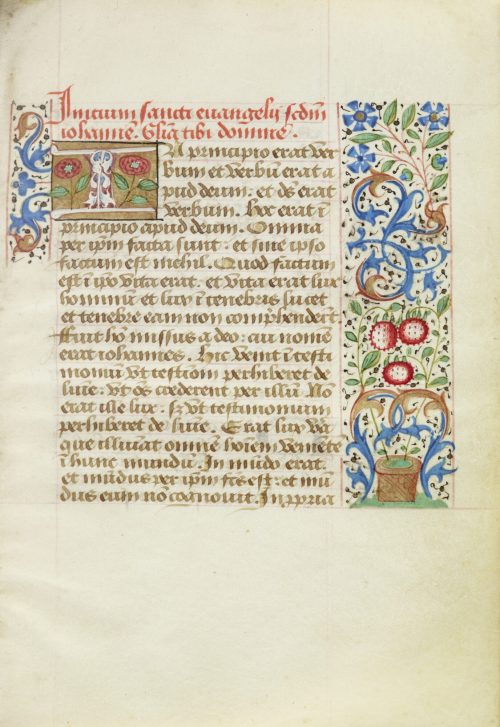 Inicium sancti euangelij scdm
iohannē. Gl̄ia tibi domine.
In principio erat ver
bum et verbū erat a
pud deum: et ds̄ erat
verbum. hoc erat ī
principio apud deum. Omnia
per ipm̄ facta sunt: et sine ipso
factum est nichil. Quod factum
est ī ipō vita erat. et vita erat lux
hominū et lux ī tenebris lucet
et tenebre eam non comprehender̄t
ffuit hō missus a deo: cui nomē
erat iohannes. Hic venit ī testi
moniū vt testioīm perhiberet de
lūīe: vt oēs crederent per illū. Nō
erat ille lux. sȝ vt testimonium
perhiberet de lūīe. Erat lux vā
que illuīat omnē hoīem venientē
ī hunc mundū. In mūdo erat.
et mūdus per ipm̄ fcs̄ est: et mū
dus eum nō cognouit. In ppria